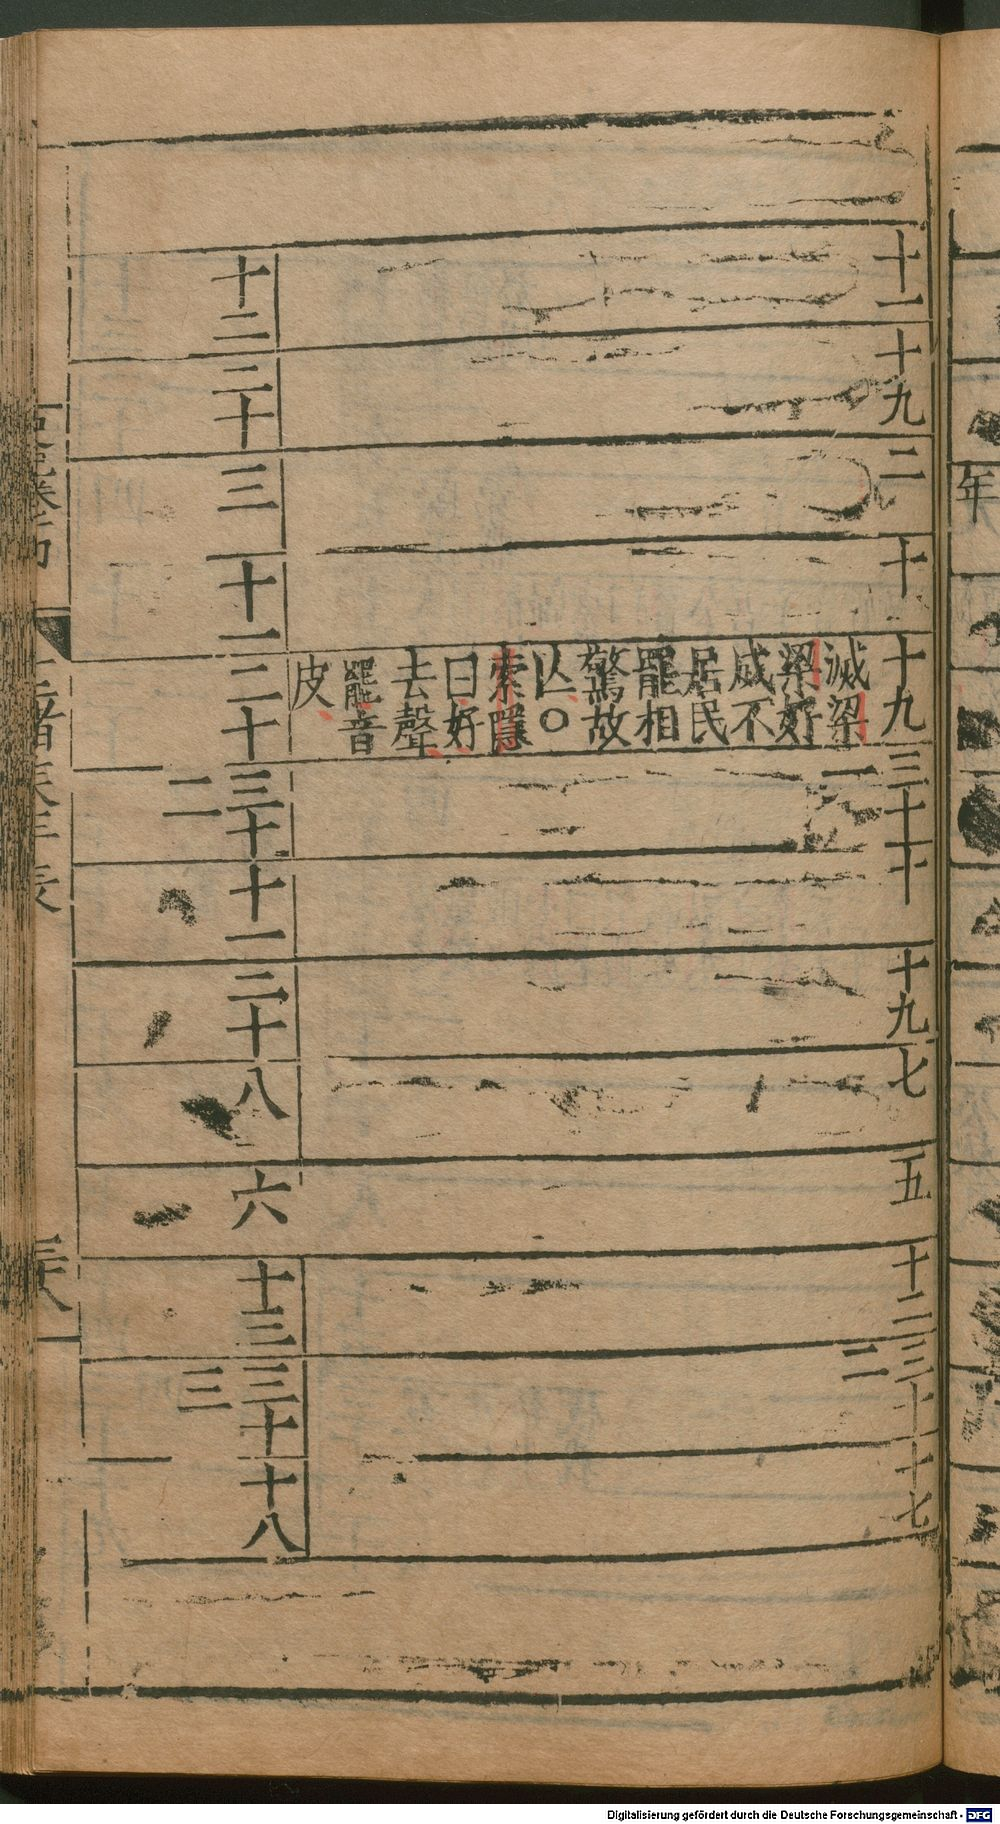 十一
十九
二
十
十九
滅梁
梁好
城不
居民
罷相
驚故
亾○
索隱
曰好
去聲
罷音
皮
三十一
十
十九
七
五
十二
三十二
十七
十二
二十
三
十一
二十
三十二
十一
二十
八
六
十三
三十三
十八
年
Digitalisierung gefördert durch die Deutsche Forschungsgemeinschaft - DFG